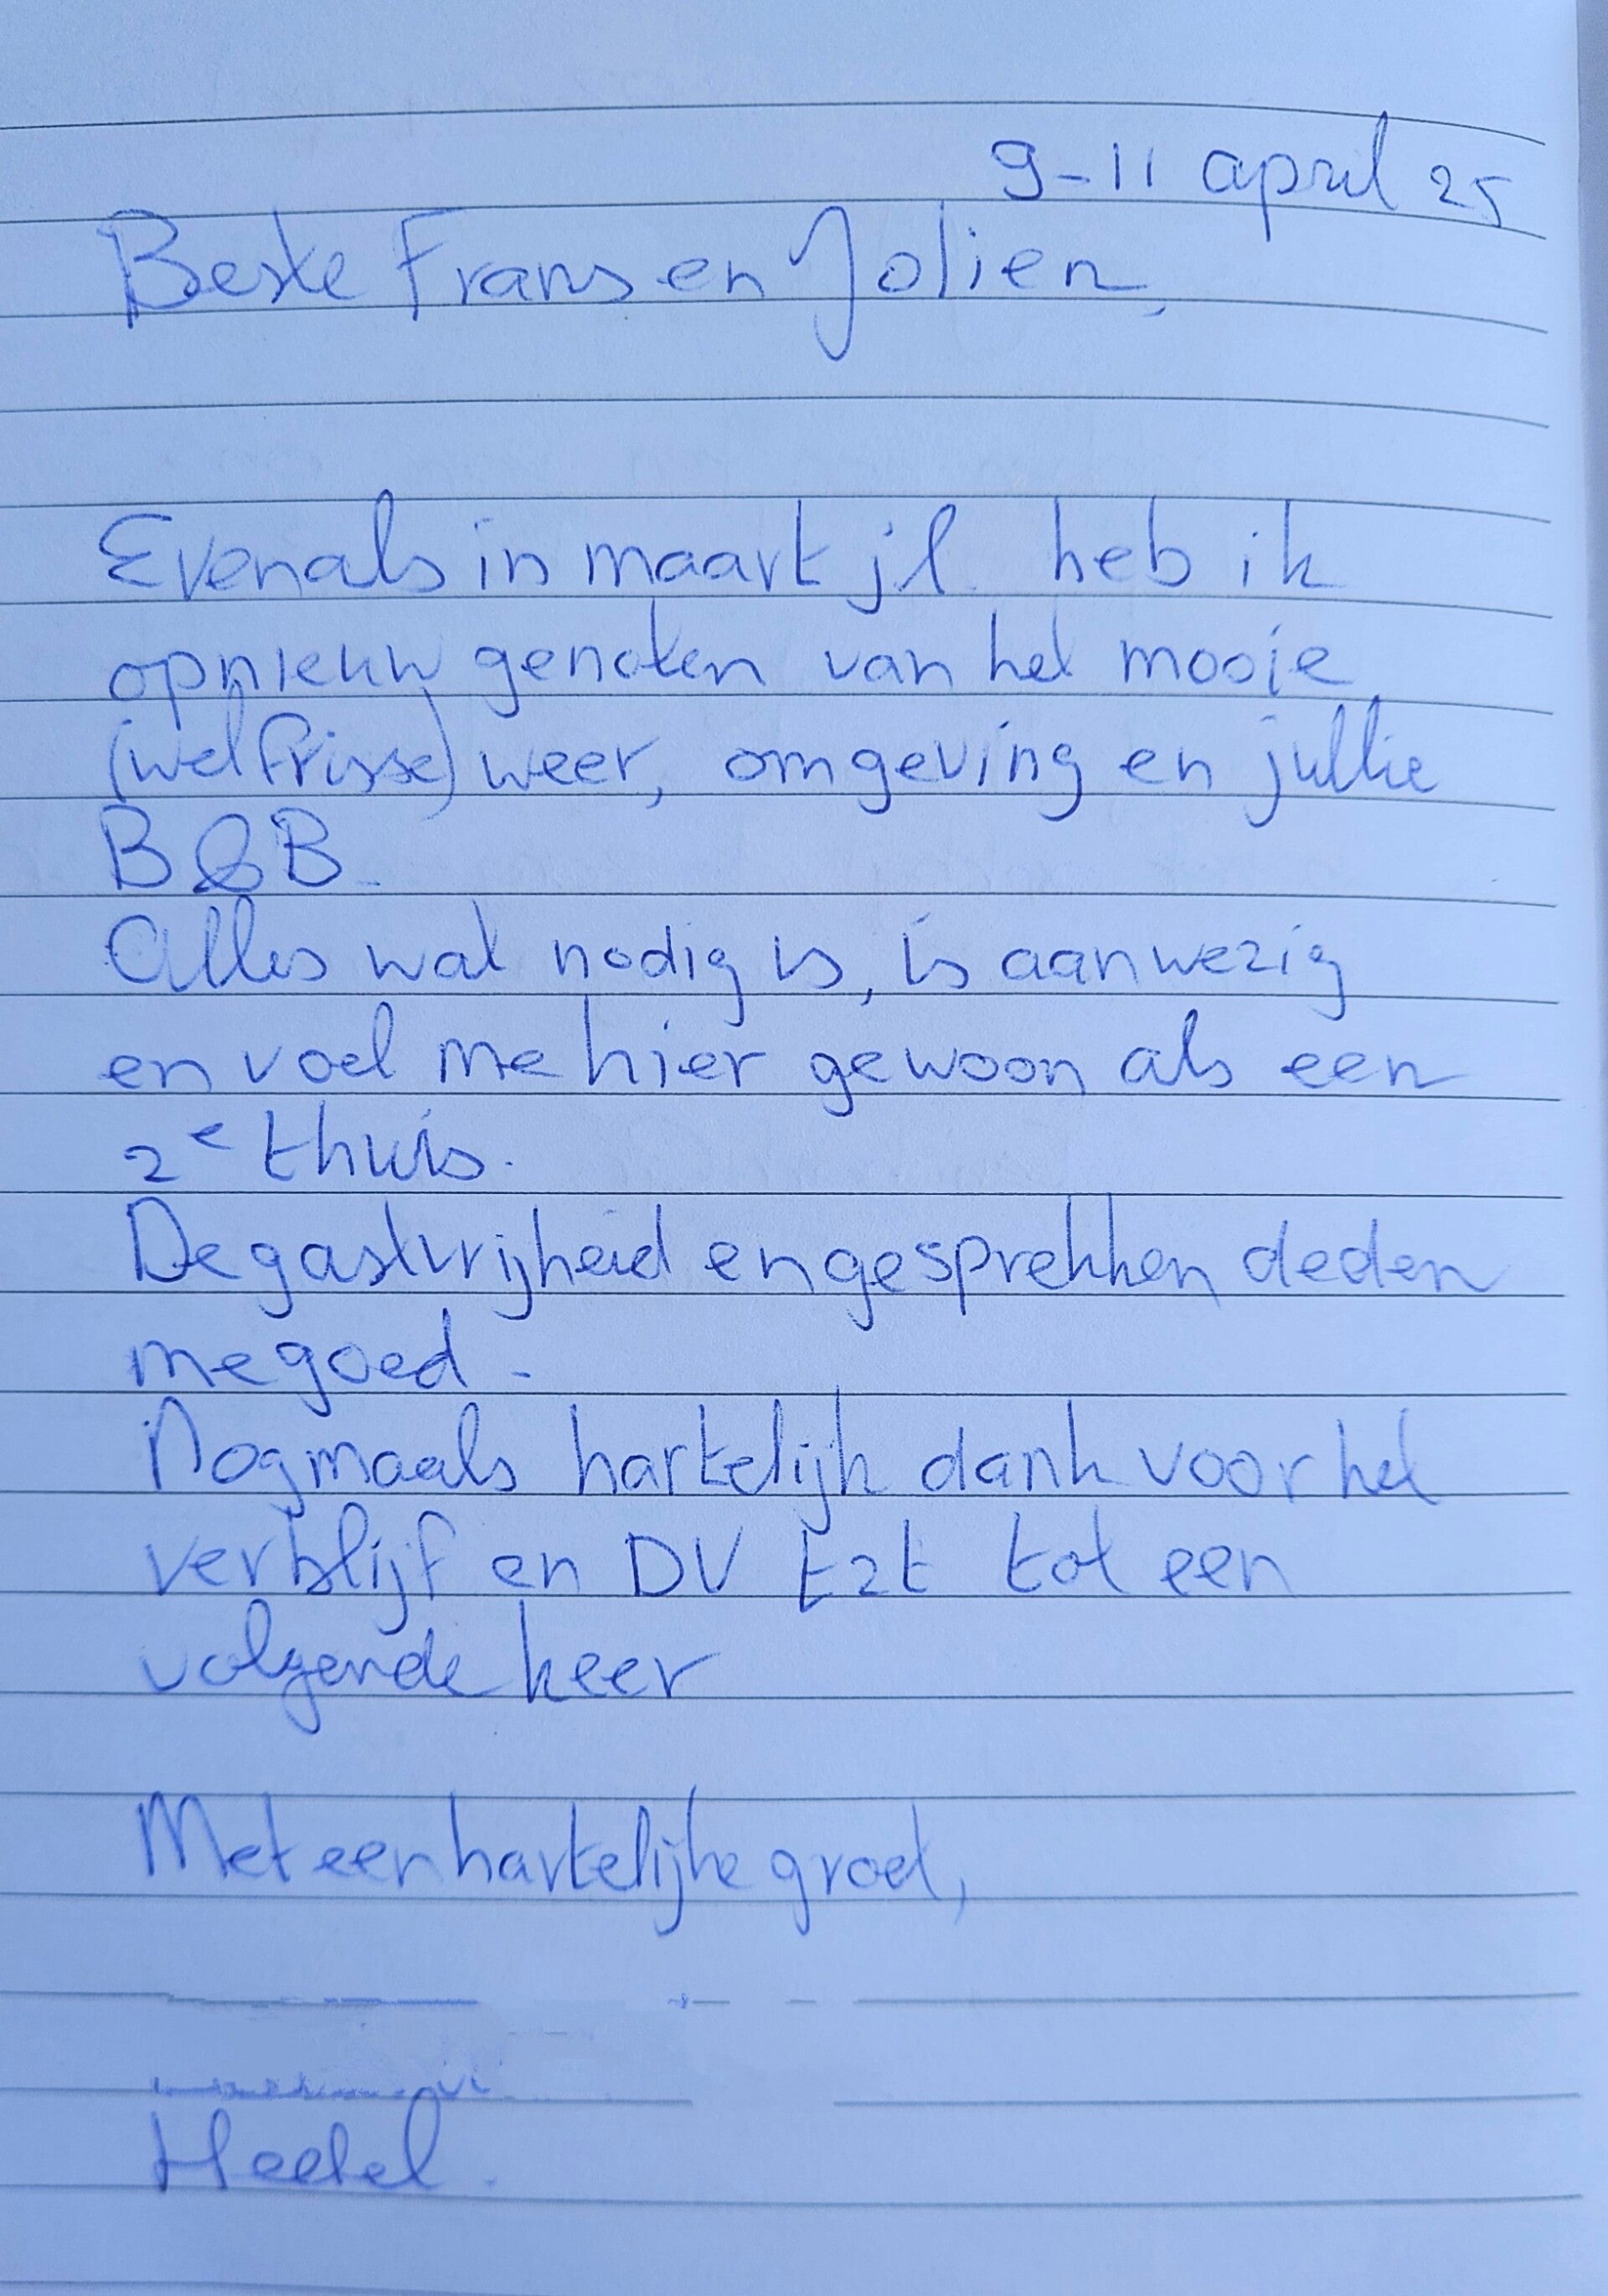 9-11 april 25
Beste Frans en Jolien,
Evenals in maart jl. heb ik
opnieuw genoten van het mooie
(wel frisse) weer, omgeving en jullie
B&B.
Alles wat nodig is, is aanwezig
en voel me hier gewoon als een
2e thuis.
De gastvrijheid en gesprekken deden
me goed.
Nogmaals hartelijk dank voor het
verblijf en DV tzt tot een
volgende keer
Met een hartelijke groet,